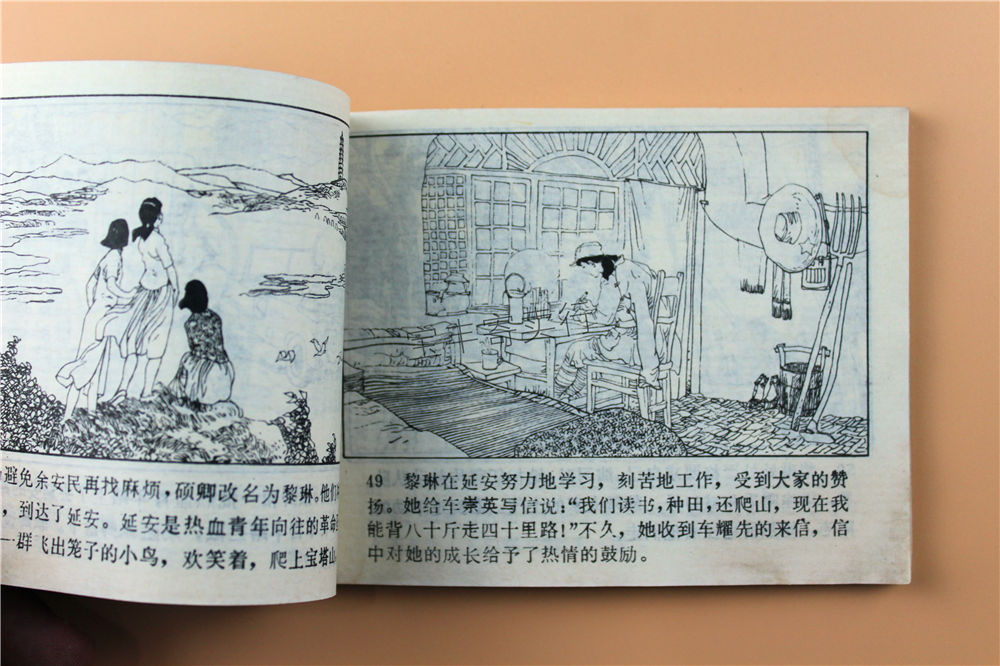 避免余安民再找麻烦，硕卿改名为黎琳。他们
，到达了延安。延安是热血青年向往的革命
一群飞出笼子的小鸟，欢笑着，爬上宝塔山
49 黎琳在延安努力地学习，刻苦地工作，受到大家的赞
扬。她给车崇英写信说：“我们读书，种田，还爬山，现在我
能背八十斤走四十里路！”不久，她收到车耀先的来信，信
中对她的成长给予了热情的鼓励。